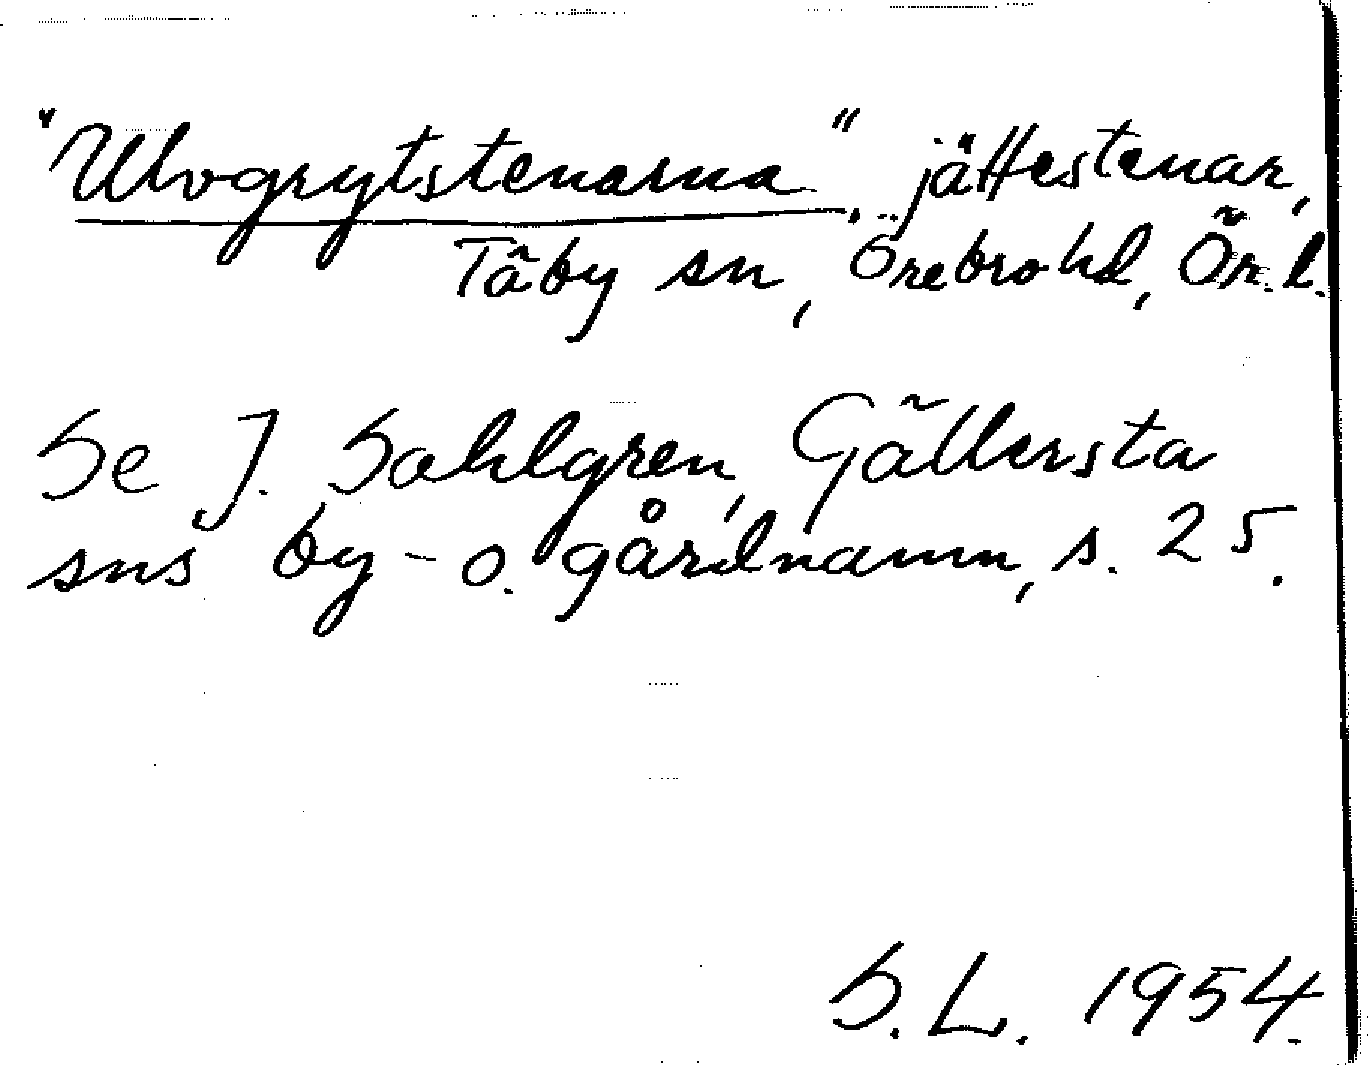 "Ulvogrytstenarna", jättestenar,
Täby sn, Örebro hd, Ör. l.
Se J. Sahlgren, Gällersta
sns by- o. gårdnamn, s. 25.
S.L. 1954.